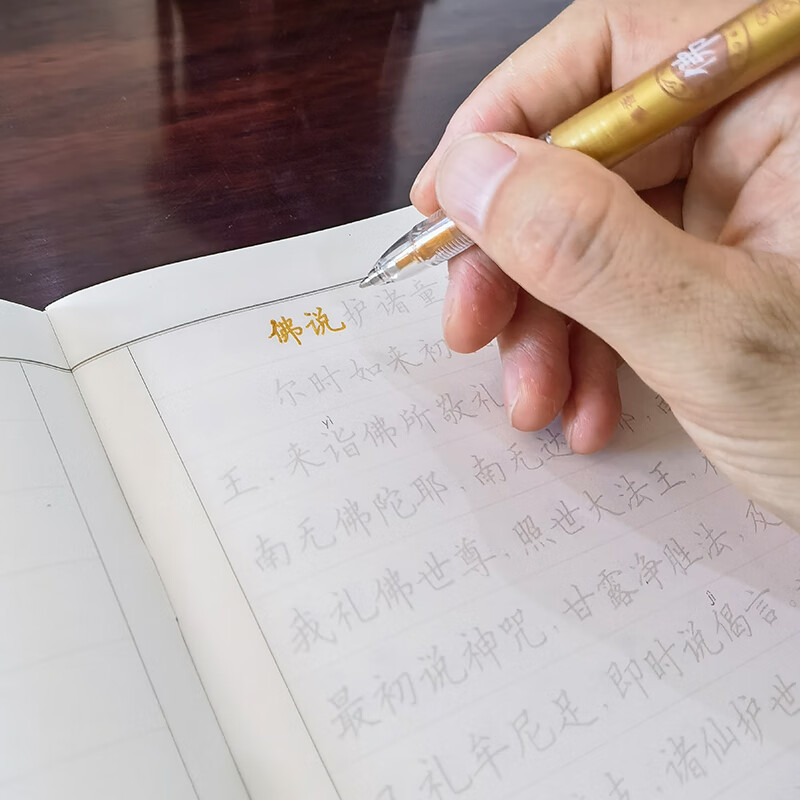 佛
佛说护诸童
尔时如来初
yì
王，来诣佛所敬礼
南无佛陀耶，南无达 耶，南
我礼佛世尊，照世大法王，
jì
最初说神咒，甘露净胜法，及
礼牟尼足，即时说偈言。
诸仙护世